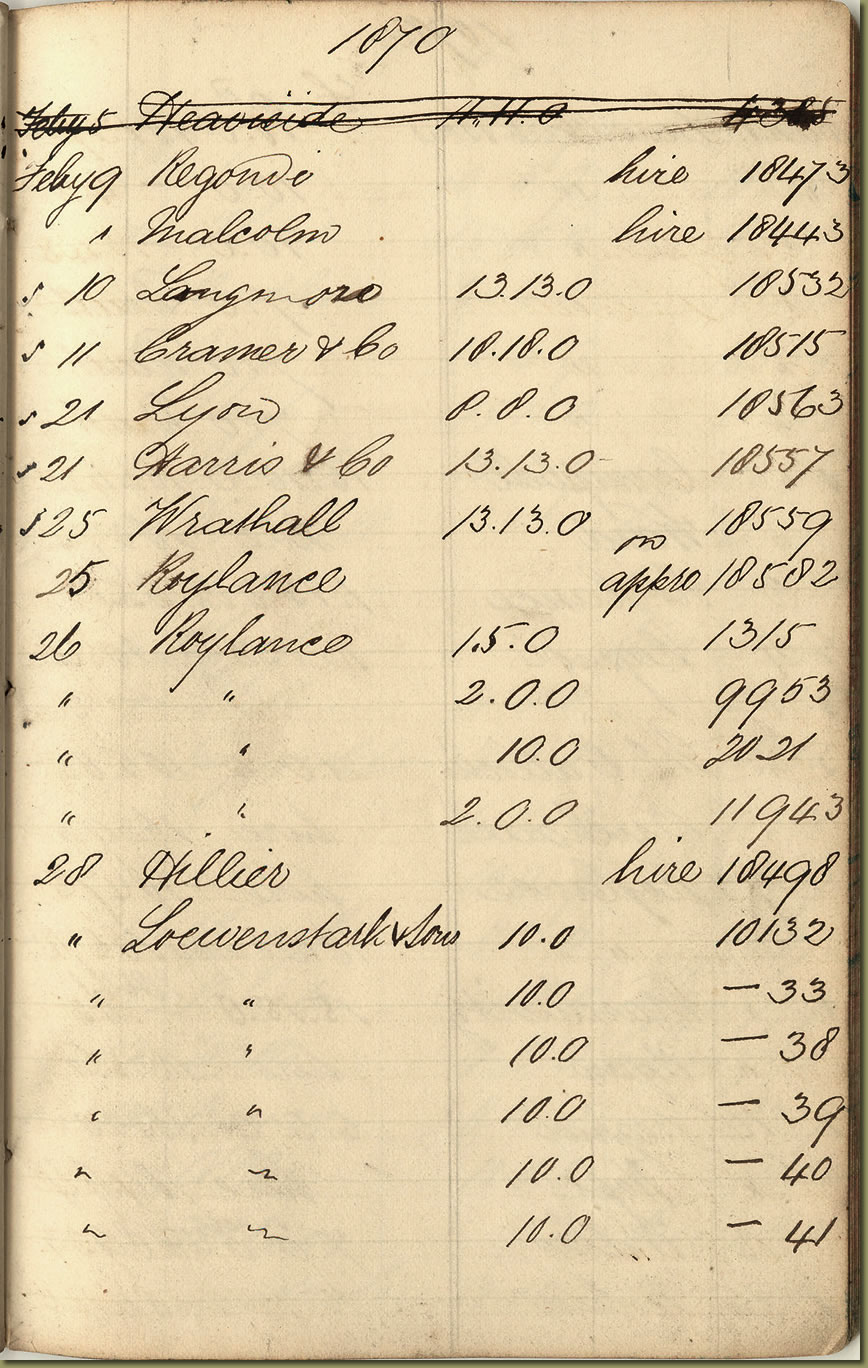 1870
Feby 5 Heaviside 11.11.0
Feby 9 Regondi hire 18473
" Malcolm hire 18443
" 10 Langmore 13.13.0 18532
" 11 Cramer & Co 18.18.0 18515
" 21 Lyon 8.8.0 18563
" 21 Harris & Co 13.13.0 18557
" 25 Wrathall 13.13.0 18559
25 Roylance on appro 18582
26 Roylance 1.5.0 1315
" " 2.0.0 9953
" " 10.0 2021
" " 2.0.0 11943
28 Hillier hire 18498
" Loewenstark & Sons 10.0 10132
" " 10.0 — 33
" " 10.0 — 38
" " 10.0 — 39
" " 10.0 — 40
" " 10.0 — 41